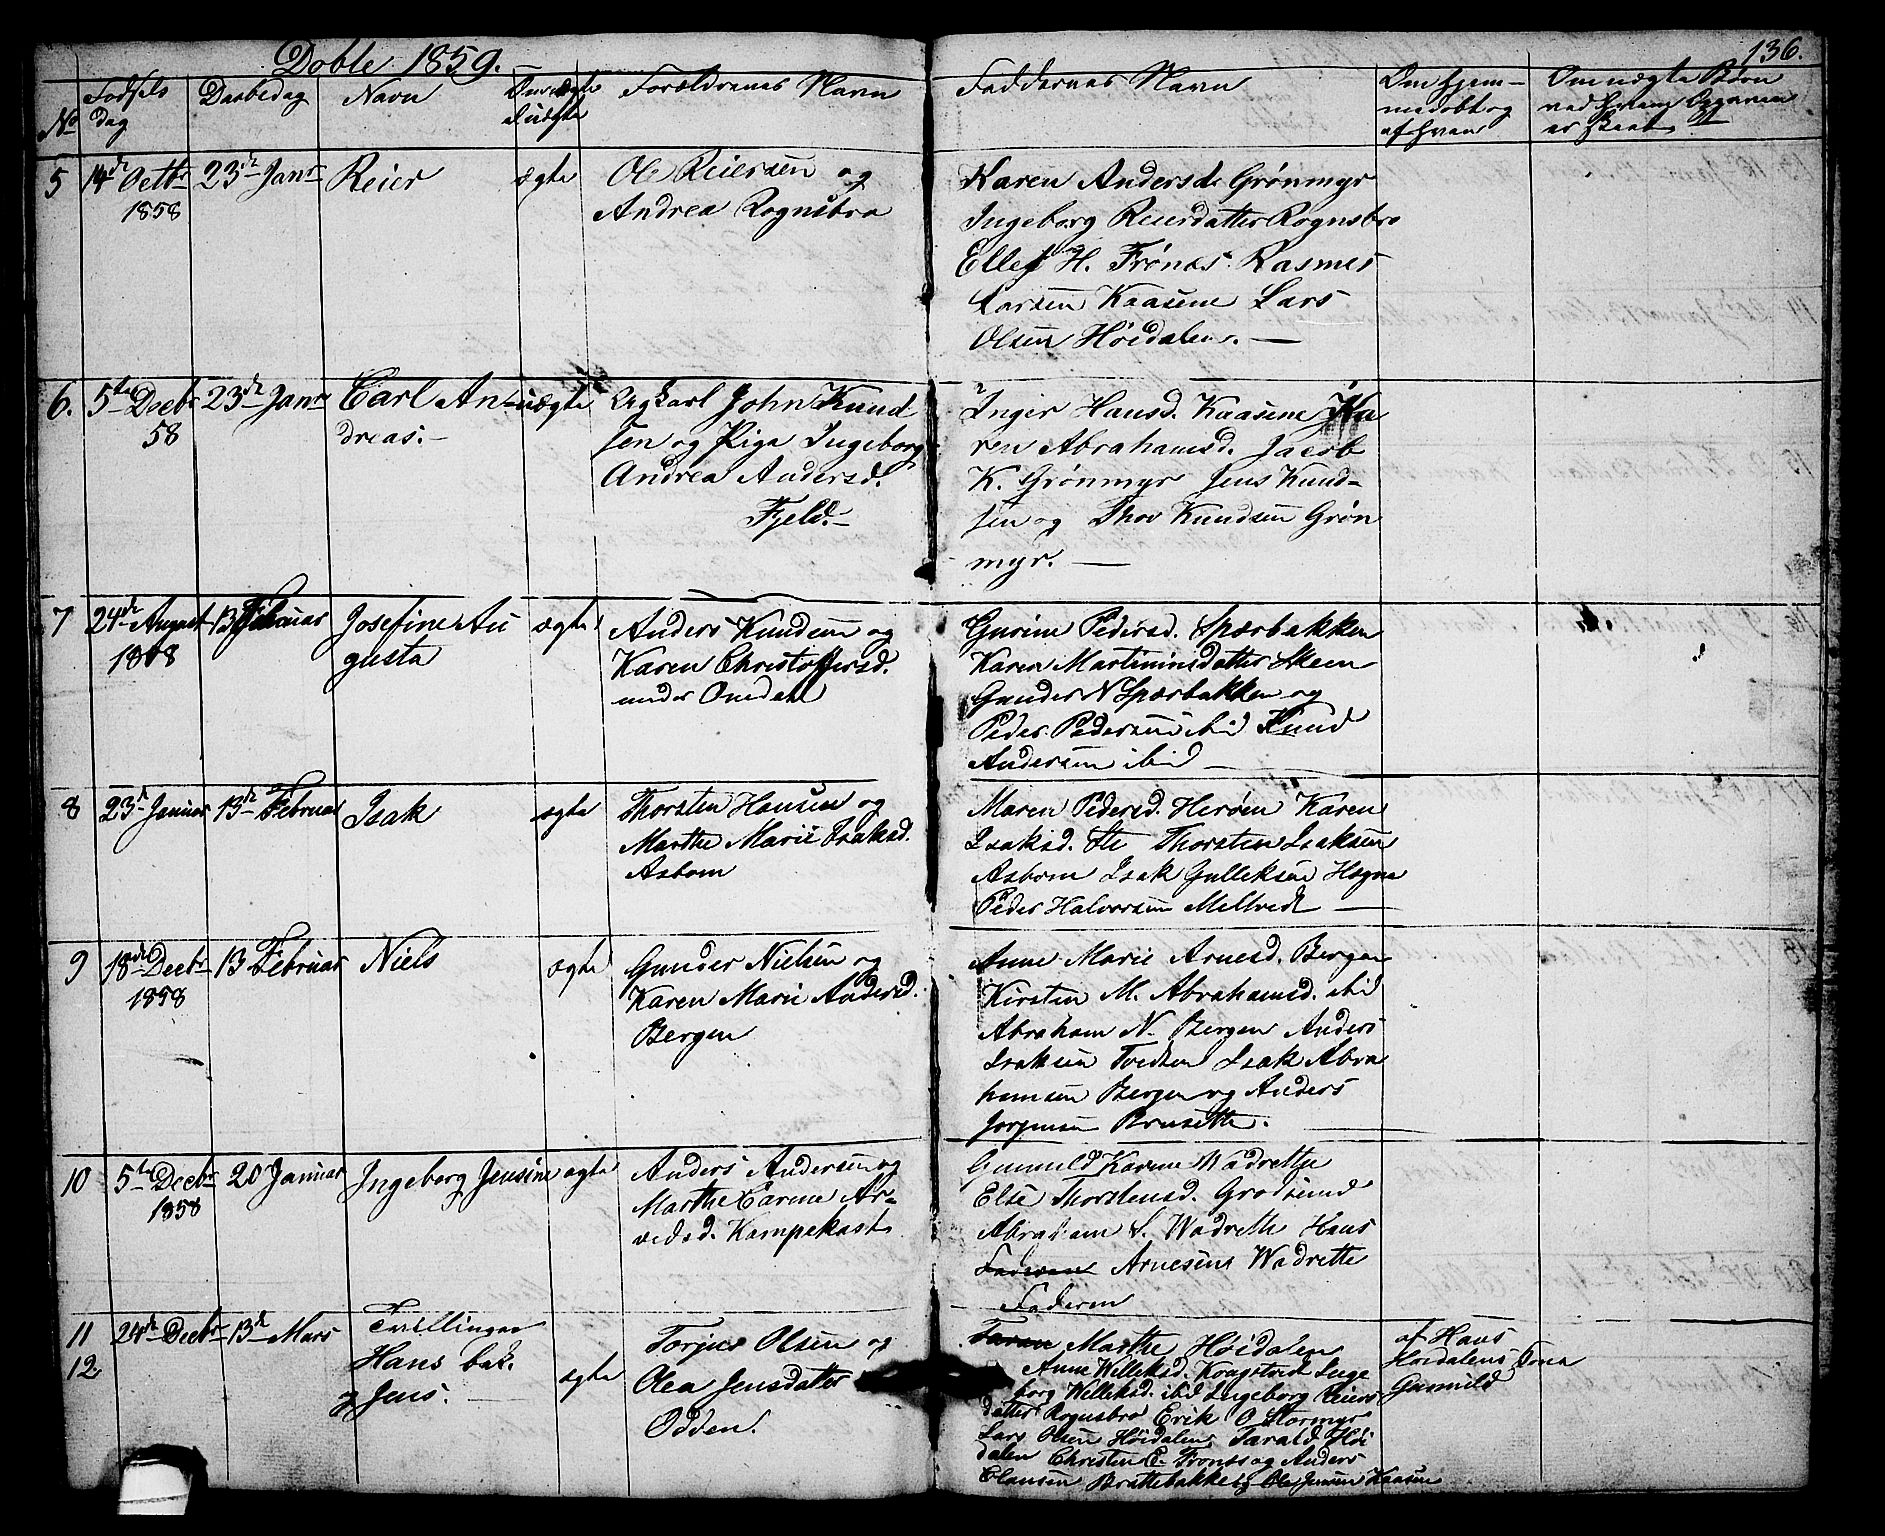 Døbte 1859.
136.
No
Fødsels
dag
Daabsdag
Navn
Om ægte
el. uægte
Forældrenes Navn
Faddernes Navn
Om hjem-
medøbt og
af hvem
Om uægte Børn
ved hvem Opgaven
er skeet
5
14de Octbr
1858
23de Janr
Reier
ægte
Ole Reiersen og
Andrea Rognsbro
Karen Andersd. Grønmyr
Ingeborg Reiersdatter Rognsbro
Ellef H. Frønæs Rasmus
Larsen Kaasene Lars
Olsen Høidalen. —
6.
5te Decbr
58
23de Janr
Carl An-
dreas. -
uægte
Ugkarl John Knud
sen og Piga Ingeborg
Andrea Andersd.
Fjeld. -
Inger Hansd. Kaasene Ka
ren Abrahamsd. Jacob
K. Grønmyr Jens Knud-
sen og Thov Knudsen Grøn
myr. —
7
24de August
1858
13 Februar
Josefine Au
gusta
ægte
Anders Knudsen og
Karen Christoffersd.
under Omdal
Gurine Pedersd. Spærbakken
Karen Martininsdatter Skeen
Gunder N Spærbakken og
Peder Pedersen ibid Knud
Andersen ibid —
8
23de Januar
13de Februar
Isak
ægte
Thorsten Hansen og
Marthe Marie Isaksd.
Asbom
Maren Pedersd. Herøen Karen
Isaksd. Thorsten Isaksen
Asbom Isak Gulleksen Hogna
Peder Halvorsen Meltved —
9
18de Decbr
1858
13 Februar
Niels
ægte
Gunder Nielsen og
Karen Marie Andersd.
Bergen
Anne Marie Arnesd. Bergen
Kirsten M. Abrahamsd. ibid
Abraham N. Bergen Anders
Isaksen Tvedten Isak Abra
hamsen Bergen og Anders
Jørgensen Brusette.
10
5te Decbr
1858
20 Januar
Ingeborg Jensine
ægte
Anders Andersen og
Marthe Karine Ar-
vedsd. Kampekast
Gunuld Karine Wadrette
Else Thorstensd. Grodsund
Abraham S. Wadrette Hans
Faderen Arnesens Wadrette
Faderen
11
12.
24de Decbr
13de Mars
Tvillinger
Hans bak.
og Jens.
ægte
Torjus Olsen og
Olea Jensdatter
Odden.
Marthe Høidalen
Anne Willeksd. Krogstved Inge
borg Willeksd. ibid Ingeborg Reiers
datter Rognsbro Erik O Stormyr
Lars Olsen Høidalen Tarald Høi
dalen Christen C. Frønæs og Anders
Clausen Brattebakke og Ole Jensen Kaasene
af Hans
Høidalens Kona
Gunuld